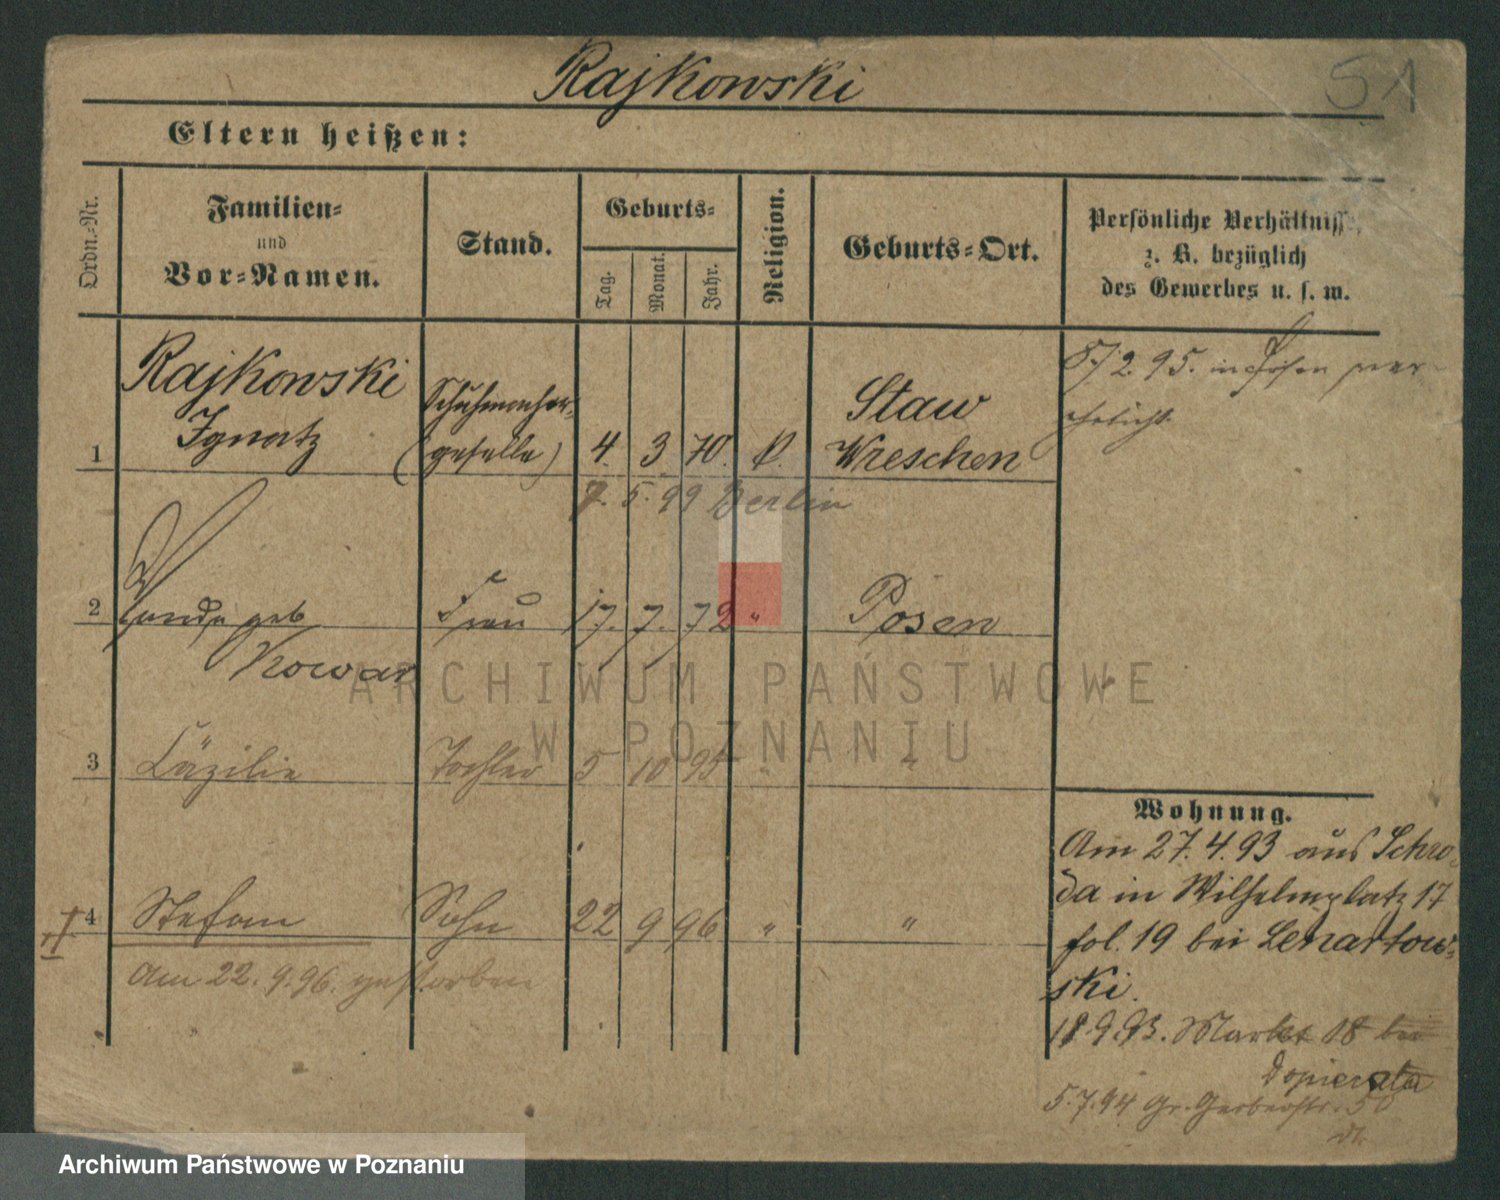 Rajkowski
51
Eltern heißen:
Ordn.-Nr.
Familien-
und
Vor-Namen.
Stand.
Geburts-
Tag.
Monat.
Jahr.
Religion.
Geburts-Ort.
Persönliche Verhältnisse,
z. B. bezüglich
des Gewerbes u. s. w.
1
Rajkowski
Ignatz
Schuhmacher-
(geselle)
4. 3. 70. k.
Staw
Wreschen
8/2. 95. in Posen ver-
ehelicht
7. 5. 99 Berlin
2
geb
Kowar
Frau
17. 7. 72 "
Posen
3
Cäzilie
Tochter
5 10 95 "
4
Stefan
Sohn
22 9 96 " "
am 22. 9. 96. gestorben
Wohnung.
Am 27. 4. 93 aus Schro-
da in Wilhelmplatz 17
fol. 19 bei Lenartow-
ski.
18. 9. 93. Markt 18 bei
Dopierala
5. 7. 94 Gr. Gerberstr. 50
ARCHIWUM PAŃSTWOWE
W POZNANIU
Archiwum Państwowe w Poznaniu